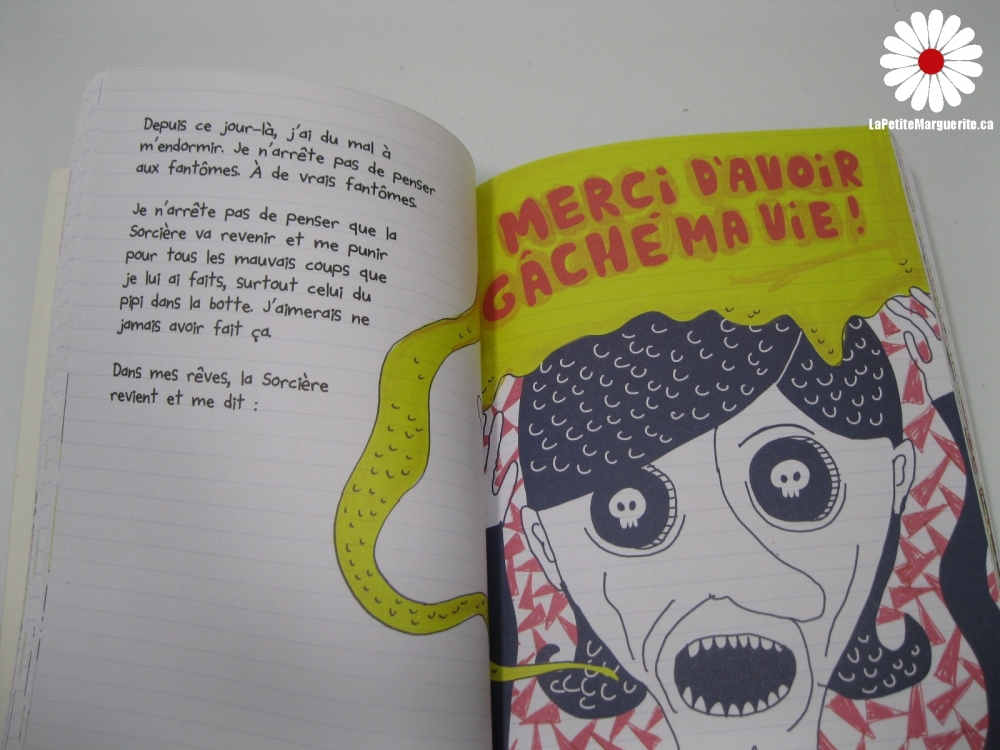 Depuis ce jour-là, j'ai du mal à
m'endormir. Je n'arrête pas de penser
aux fantômes. À de vrais fantômes.
Je n'arrête pas de penser que la
Sorcière va revenir et me punir
pour tous les mauvais coups que
je lui ai faits, surtout celui du
pipi dans la botte. J'aimerais ne
jamais avoir fait ça.
Dans mes rêves, la Sorcière
revient et me dit :
MERCi D'AVOiR
GÂCHÉ MA ViE !
LaPetiteMarguerite.ca